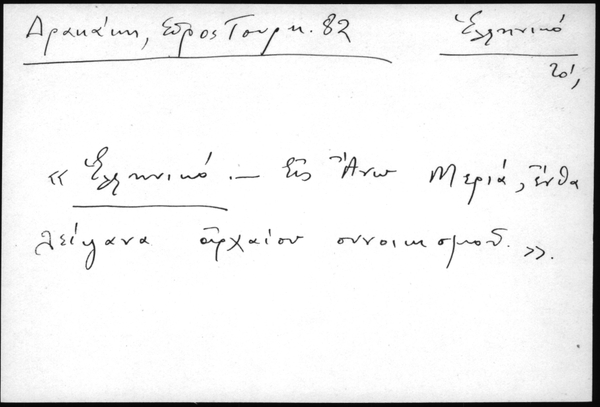 Δρακάκη, Σῦρος Τουρκ. 82
Ἑλληνικό
τό,
« Ἑλληνικό .— Εἰς Ἄνω Μεριά, ἔνθα
λείψανα ἀρχαίου συνοικισμοῦ. ».